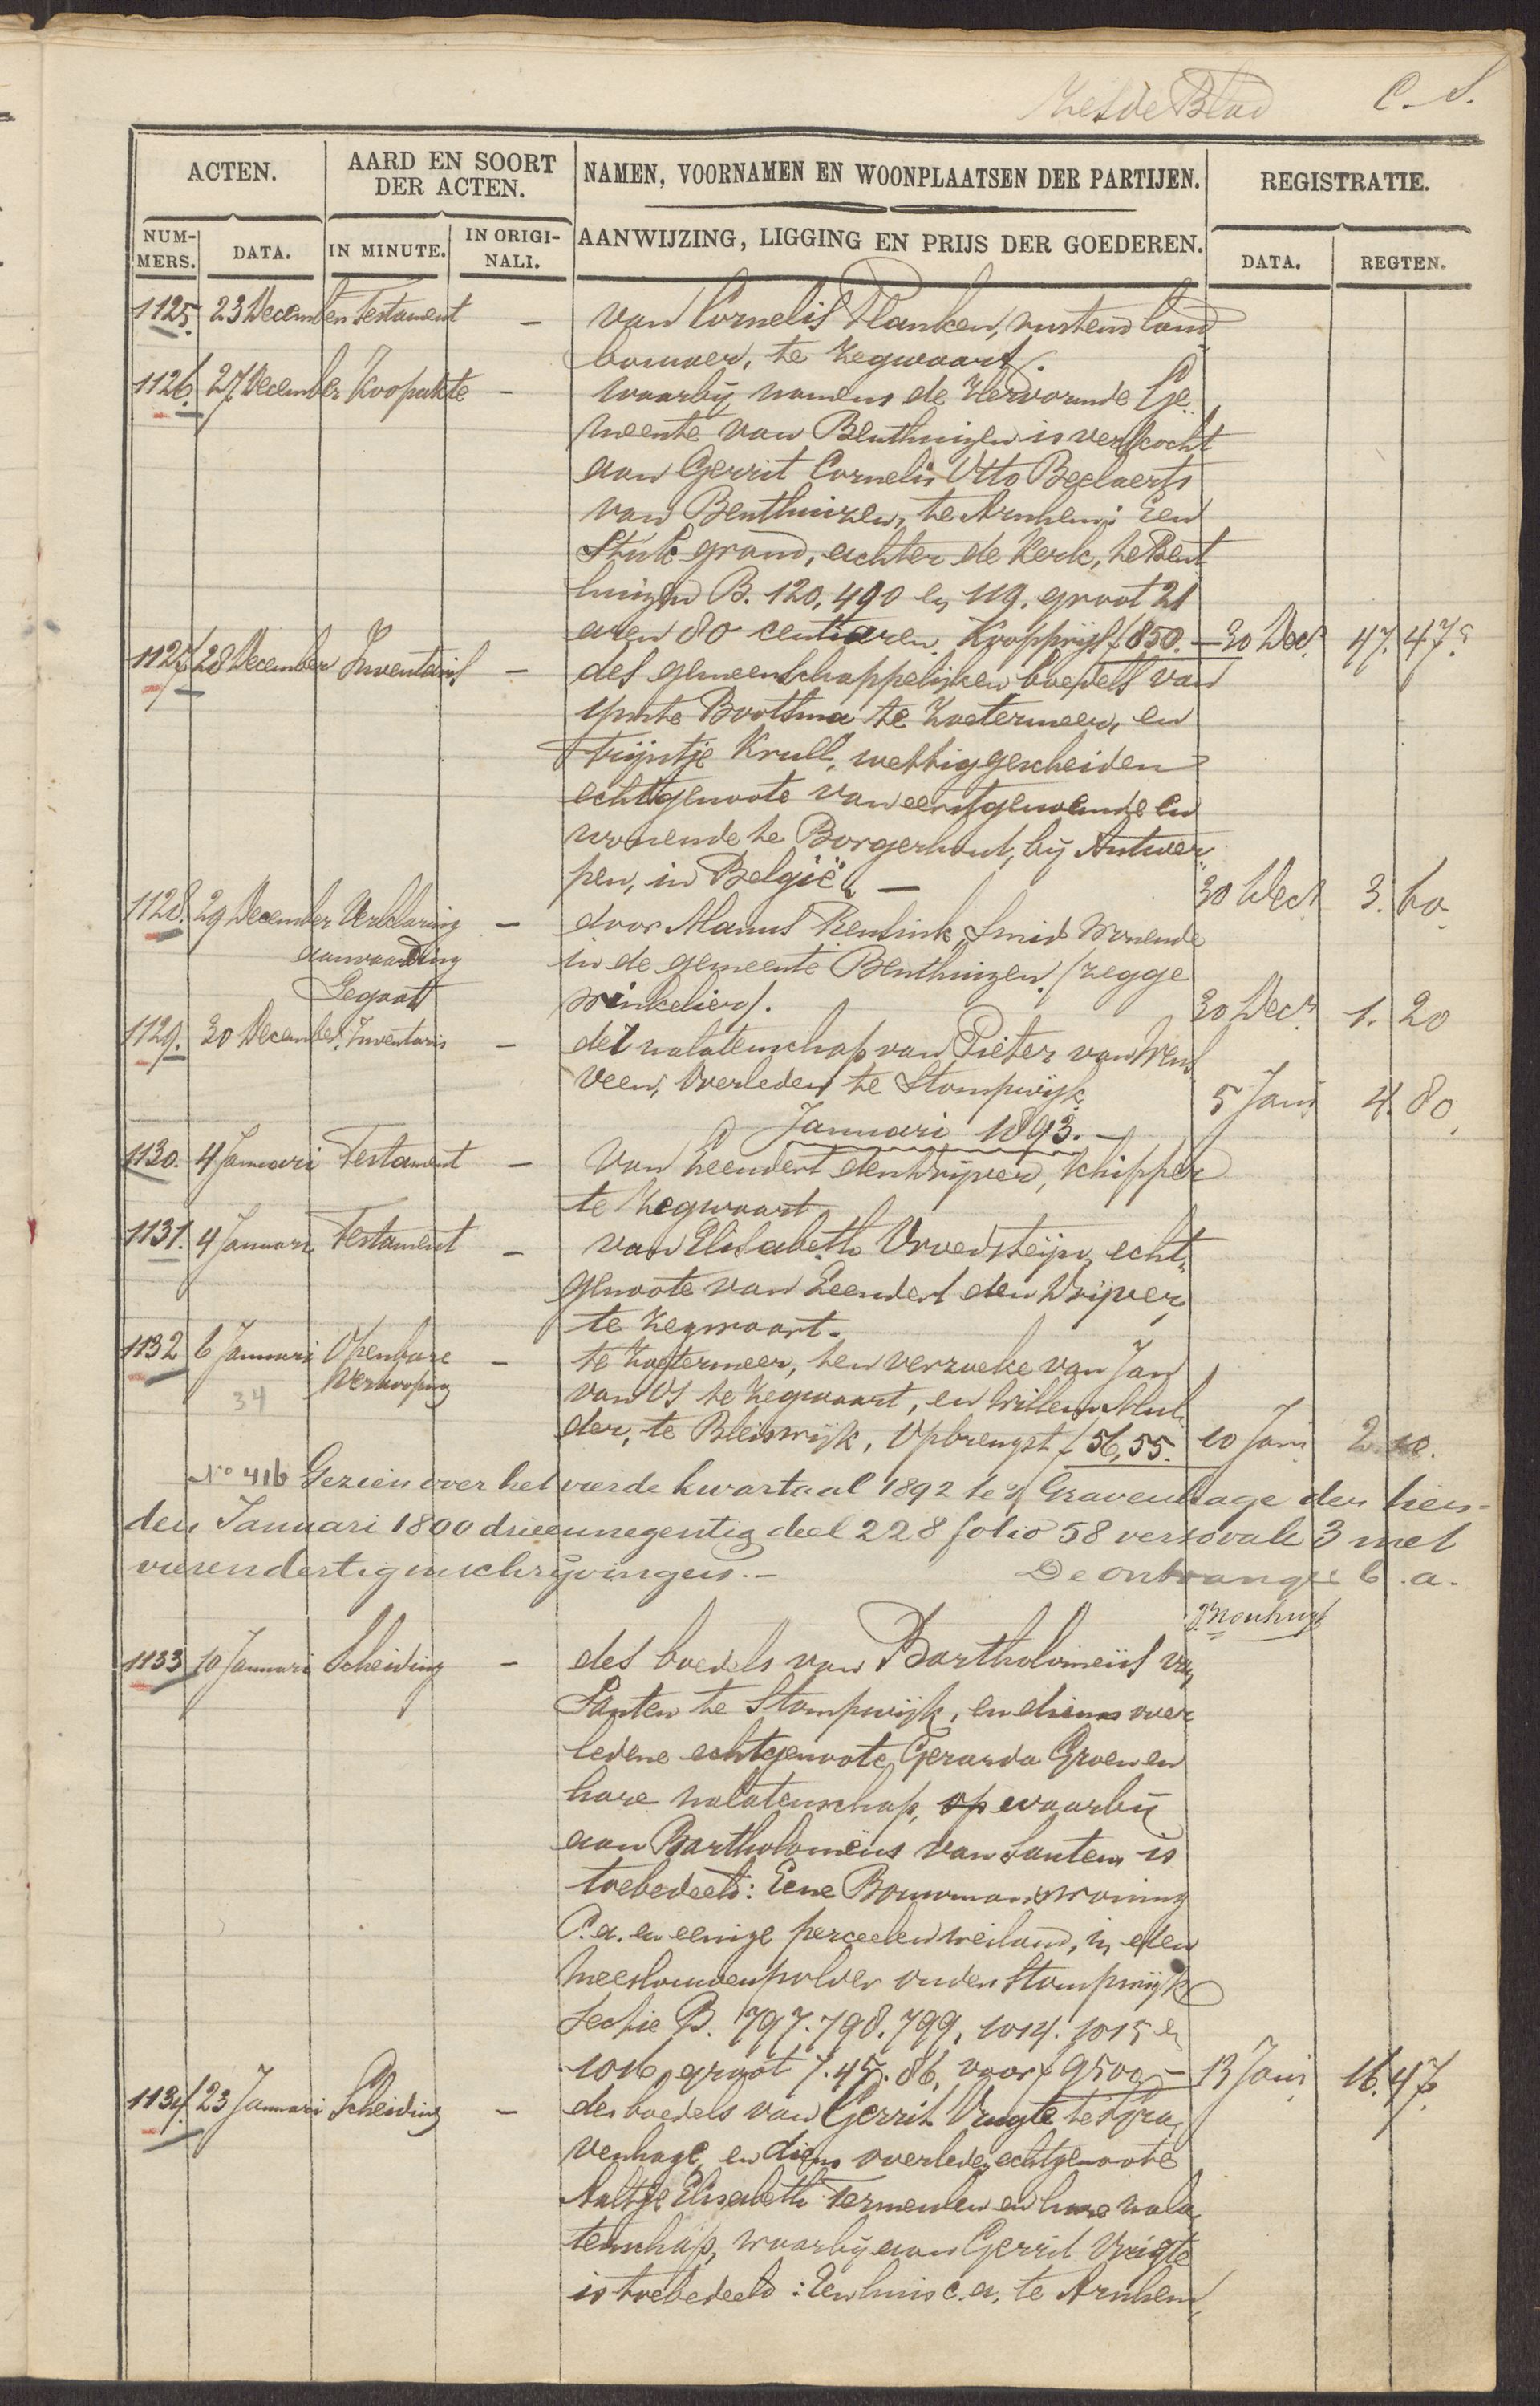 Zesde Blad C. S.
ACTEN. AARD EN SOORT DER ACTEN. NAMEN, VOORNAMEN EN WOONPLAATSEN DER PARTIJEN. REGISTRATIE.
NUM-MERS. DATA. IN MINUTE. IN ORIGI-NALI. AANWIJZING, LIGGING EN PRIJS DER GOEDEREN. DATA. REGTEN.
1125. 23 December Testament — van Cornelis Planken, rustend land
bouwer, te Zegwaart.
1126. 27 December Koopakte — waarbij namens de Hervormde Ge
meente van Benthuizen is verkocht
aan Gerrit Cornelis Otto Beelaerts
van Benthuizen, te Arnhem: Een
Stuk grond, achter de Kerk, te Bent
huizen B. 120, 490 en 119. groot 21
aren 80 centiaren. Koopprijs f 850.— 30 Dec. 47. 47.5
1127. 28 December Inventaris — des gemeenschappelijken boedels van
Ymte Bootsma te Zoetermeer, en
Trijntje Krull, wettig gescheiden
echtgenoote van eerstgenoemde en
wonende te Borgerhout, bij Antwer
pen, in België. — 30 Dec. 3. 60
1128. 29 December Verklaring — door Manus Rensink, Smid wonende
aanvaarding in de gemeente Benthuizen. (zegge
Legaat winkelier). 30 Dec. 1. 20
1129. 30 December Inventaris — der nalatenschap van Pieter van
veen, overleden te Stompwijk. 5 Jan. 4. 80.
Januari 1893.—
1130. 4 Januari Testament — van Leendert den Drijver, Schipper
te Zegwaart
1131. 4 Januari Testament — van Elisabeth Vroedsteijn, echt-
genoote van Leendert den Drijver,
te Zegwaart.
1132 6 Januari Openbare — te Zoetermeer, ten verzoeke van Jan
34 Verkooping van Os te Zegwaart, en Willem Mul
der, te Bleiswijk, Opbrengst f 56,55. 10 Jan. 2. 10.
No 416 Gezien over het vierde kwartaal 1892 te 's Gravenhage den tien-
den Januari 1800 drieennegentig deel 228 folio 58 verso vak 3 met
vierendertig inschrijvingen.— De ontvanger b. a.
1133 10 Januari Scheiding — des boedels van Bartholomeus van
Santen te Stompwijk, en diens over
ledene echtgenoote, Gerarda Groen en
hare nalatenschap, op waarbij
aan Bartholomeus van Santen is
toebedeeld: Eene Bouwmanswoning
c.a. en eenige perceelen weiland, in den
Meeslouwenpolder onder Stompwijk
Sectie B. 797. 798. 799. 1014. 1015 en
1016, groot 7. 45. 86, voor f 9500.— 13 Jan. 16. 47
1134. 23 Januari Scheiding — des boedels van Gerrit Vrugte te 's Gra
venhage, en diens overleden echtgenoote
Aaltje Elisabeth Vermeulen en hare nala
tenschap, waarbij aan Gerrit Vrugte
is toebedeeld: Een huis c.a. te Arnhem,